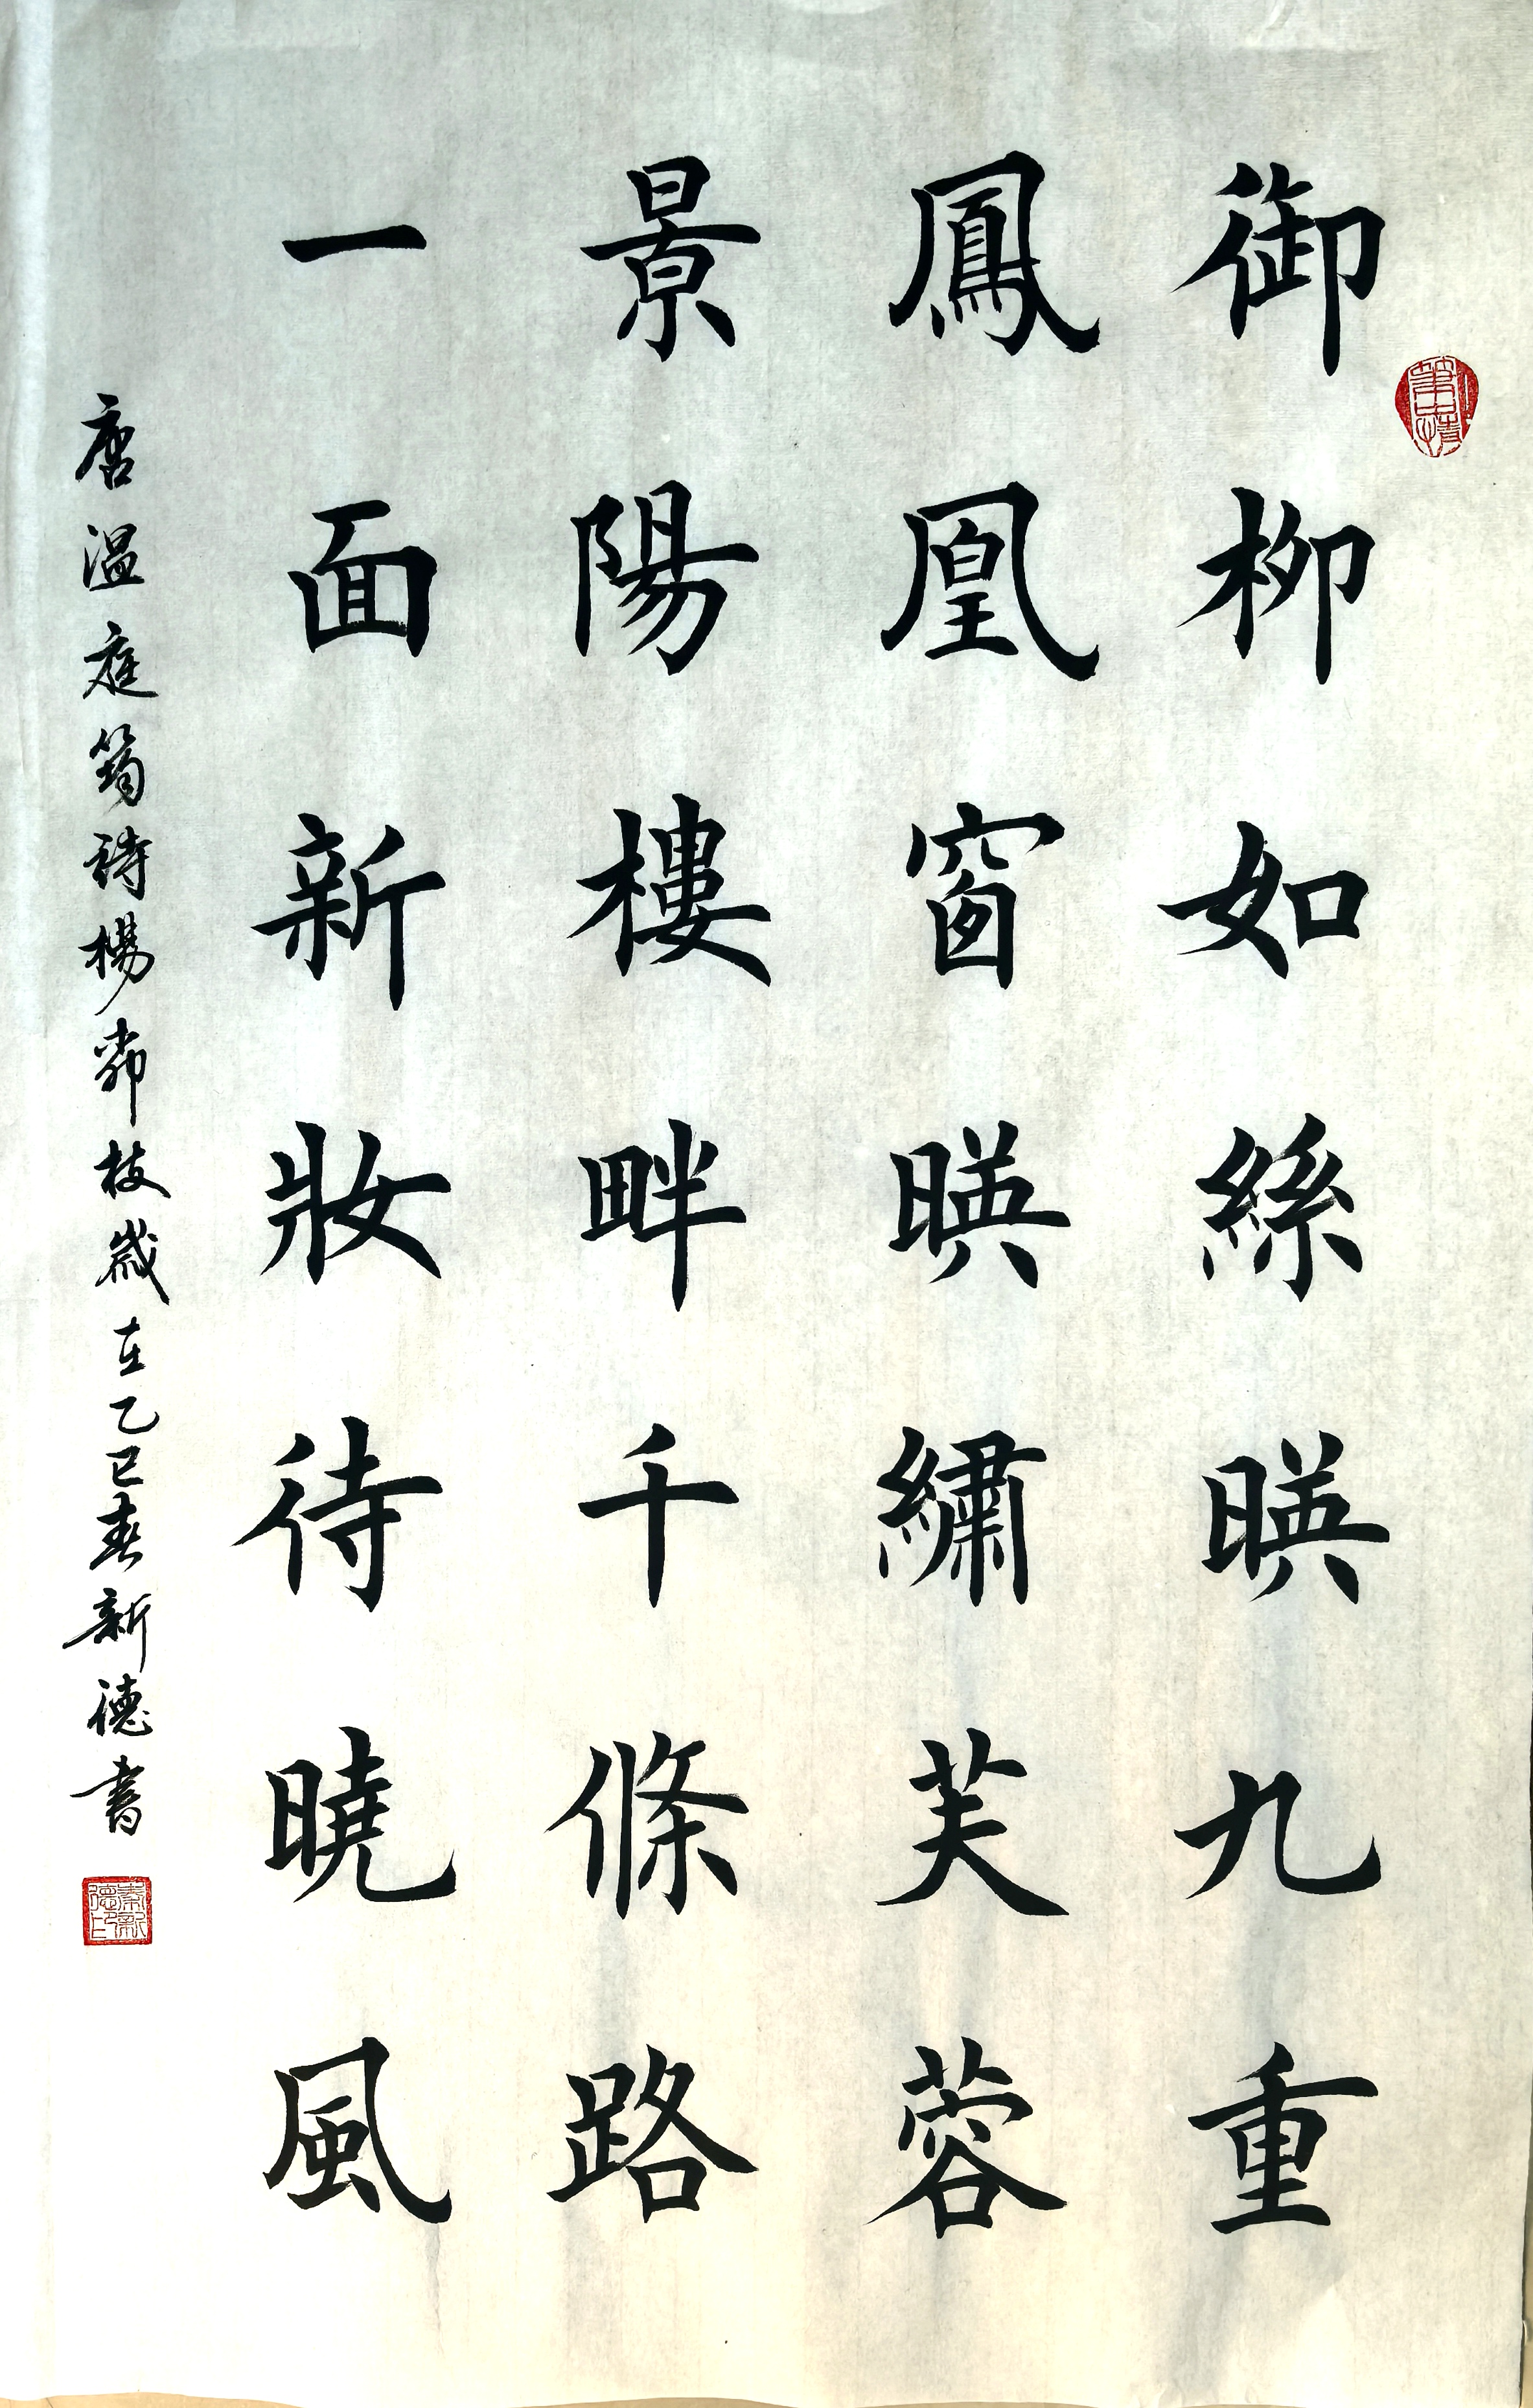 御柳如絲暎九重
鳳凰窗暎繡芙蓉
景陽樓畔千條路
一面新妝待曉風
唐温庭筠詩楊柳枝歲在乙巳春新德書